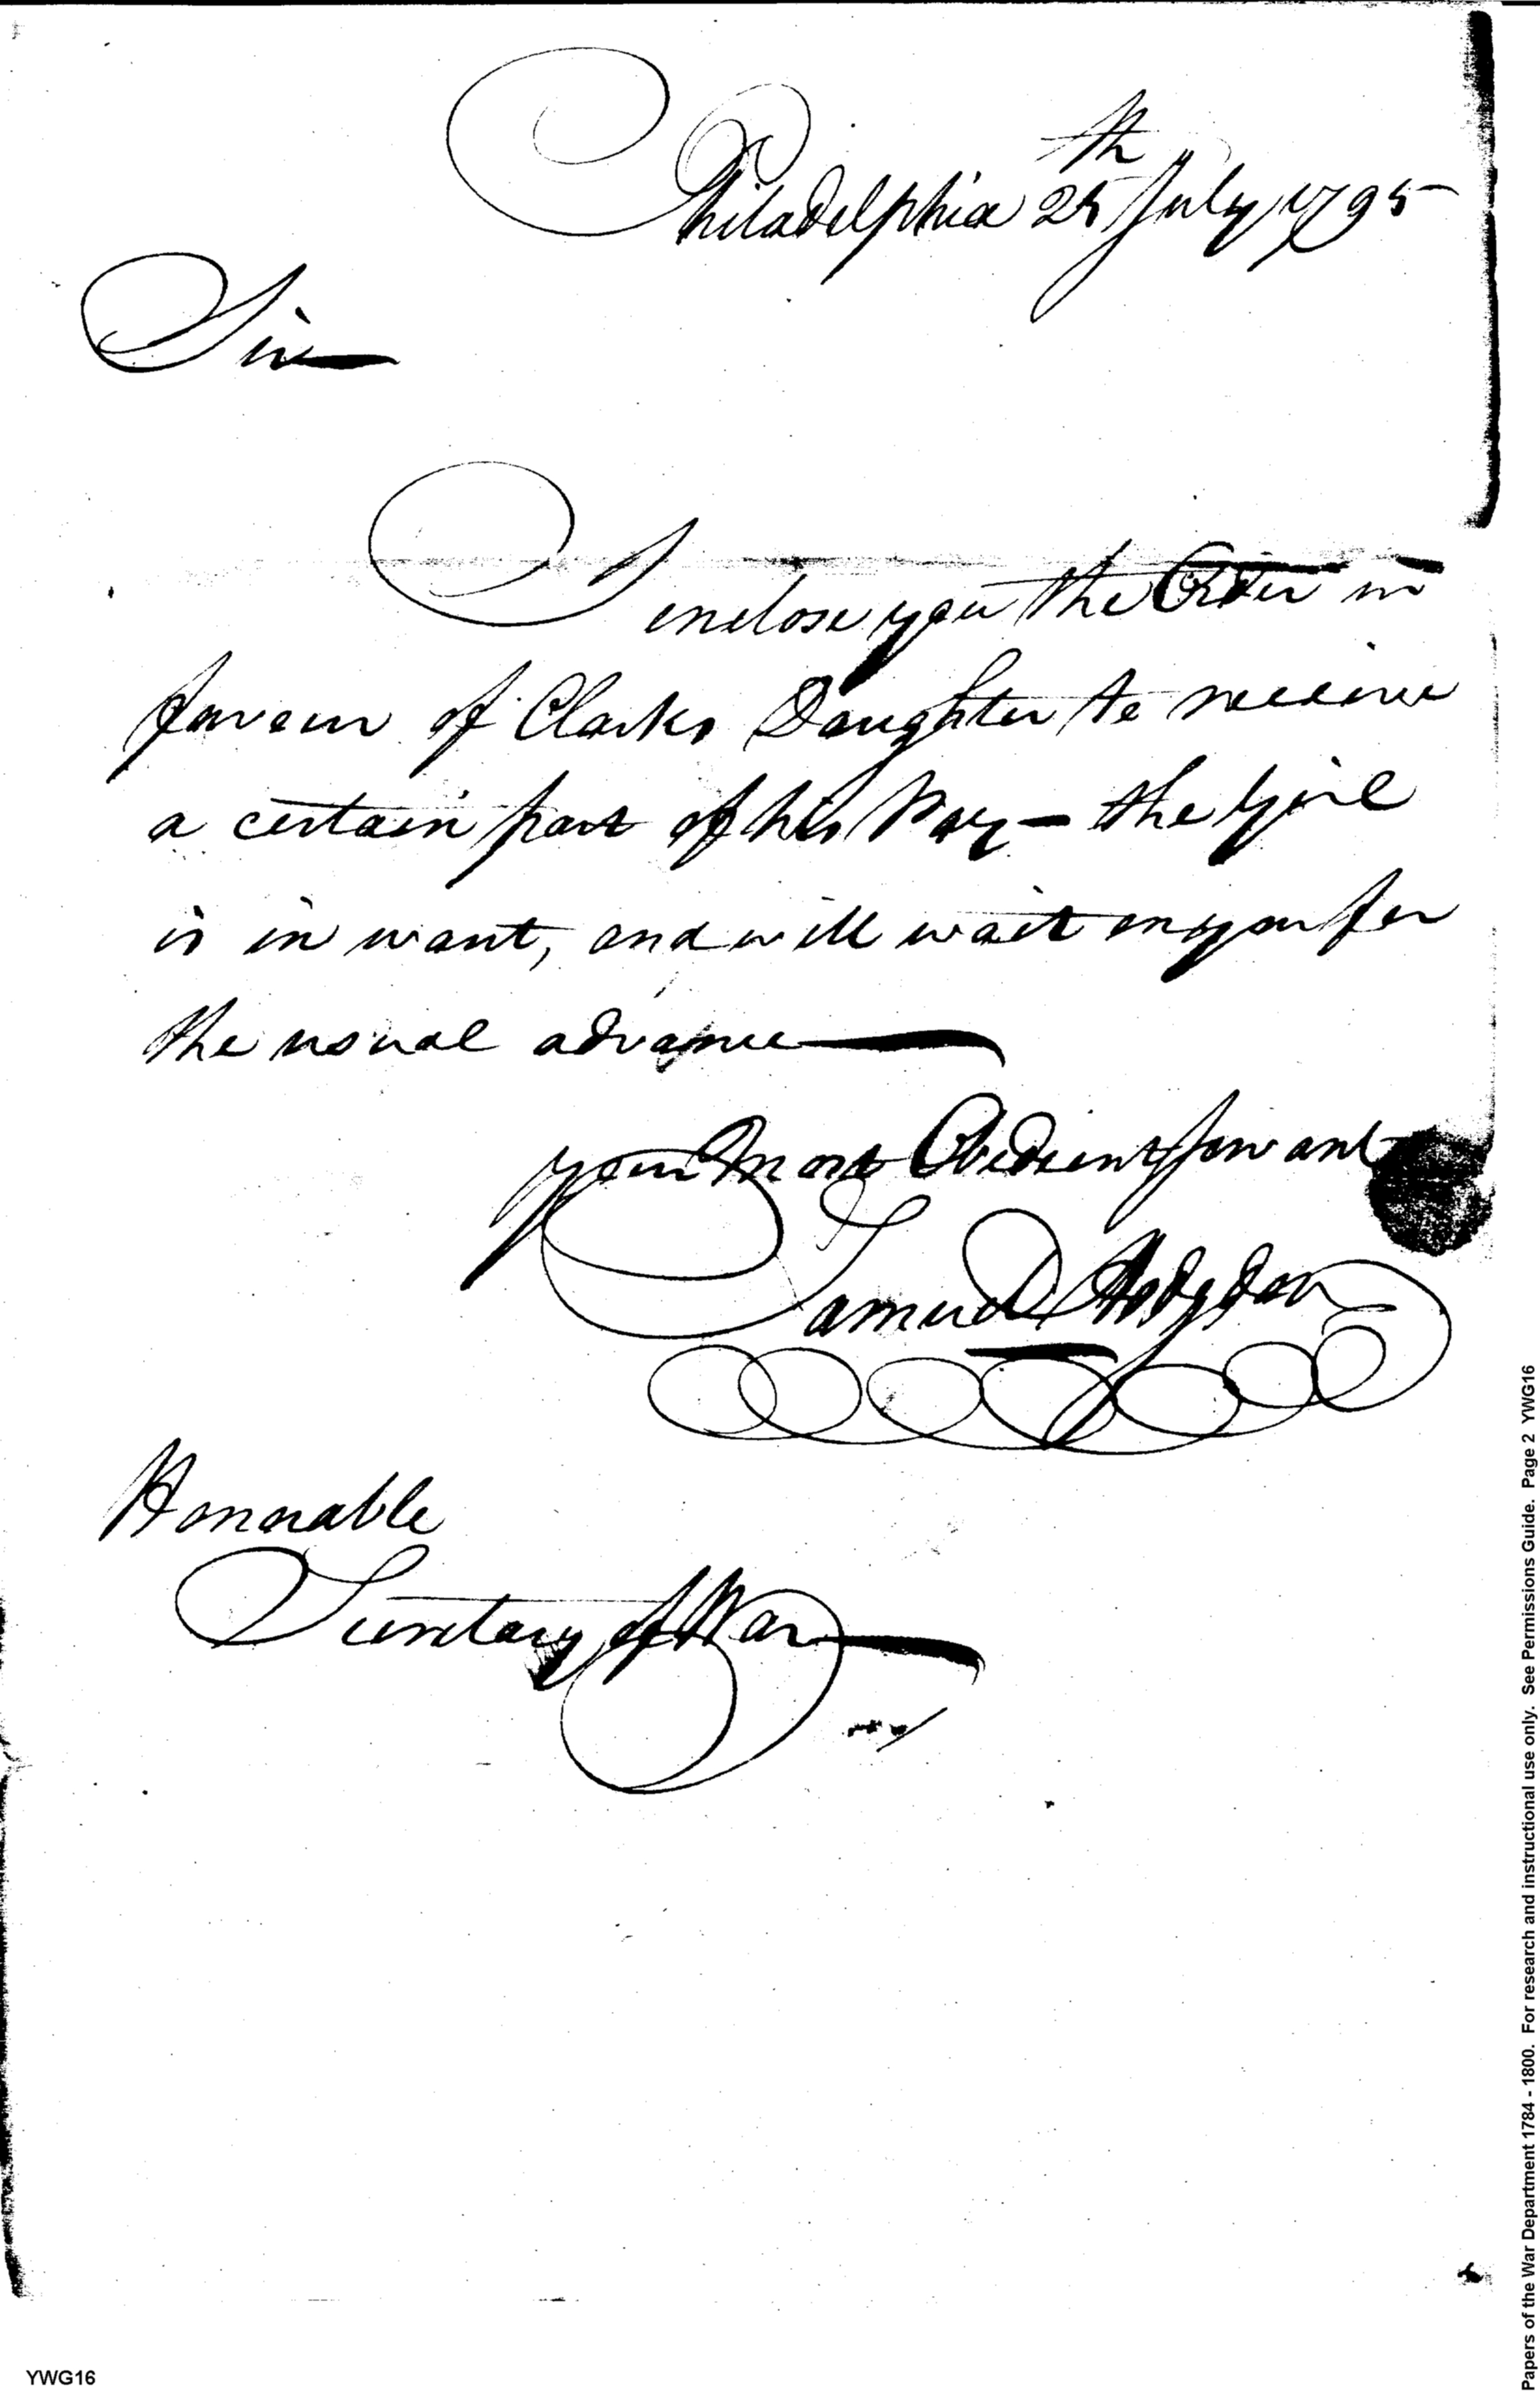 Philadelphia 25th July 1795
Sir
I enclose you the Order in
favour of Clarks Daughter to receive
a certain part of his Pay — the Girl
is in want, and will wait on you for
the usual advance
your Most Obedient Servant
Samuel Hodgdon
Honorable
Secretary of War
YWG16
Papers of the War Department 1784 - 1800. For research and instructional use only. See Permissions Guide. Page 2 YWG16